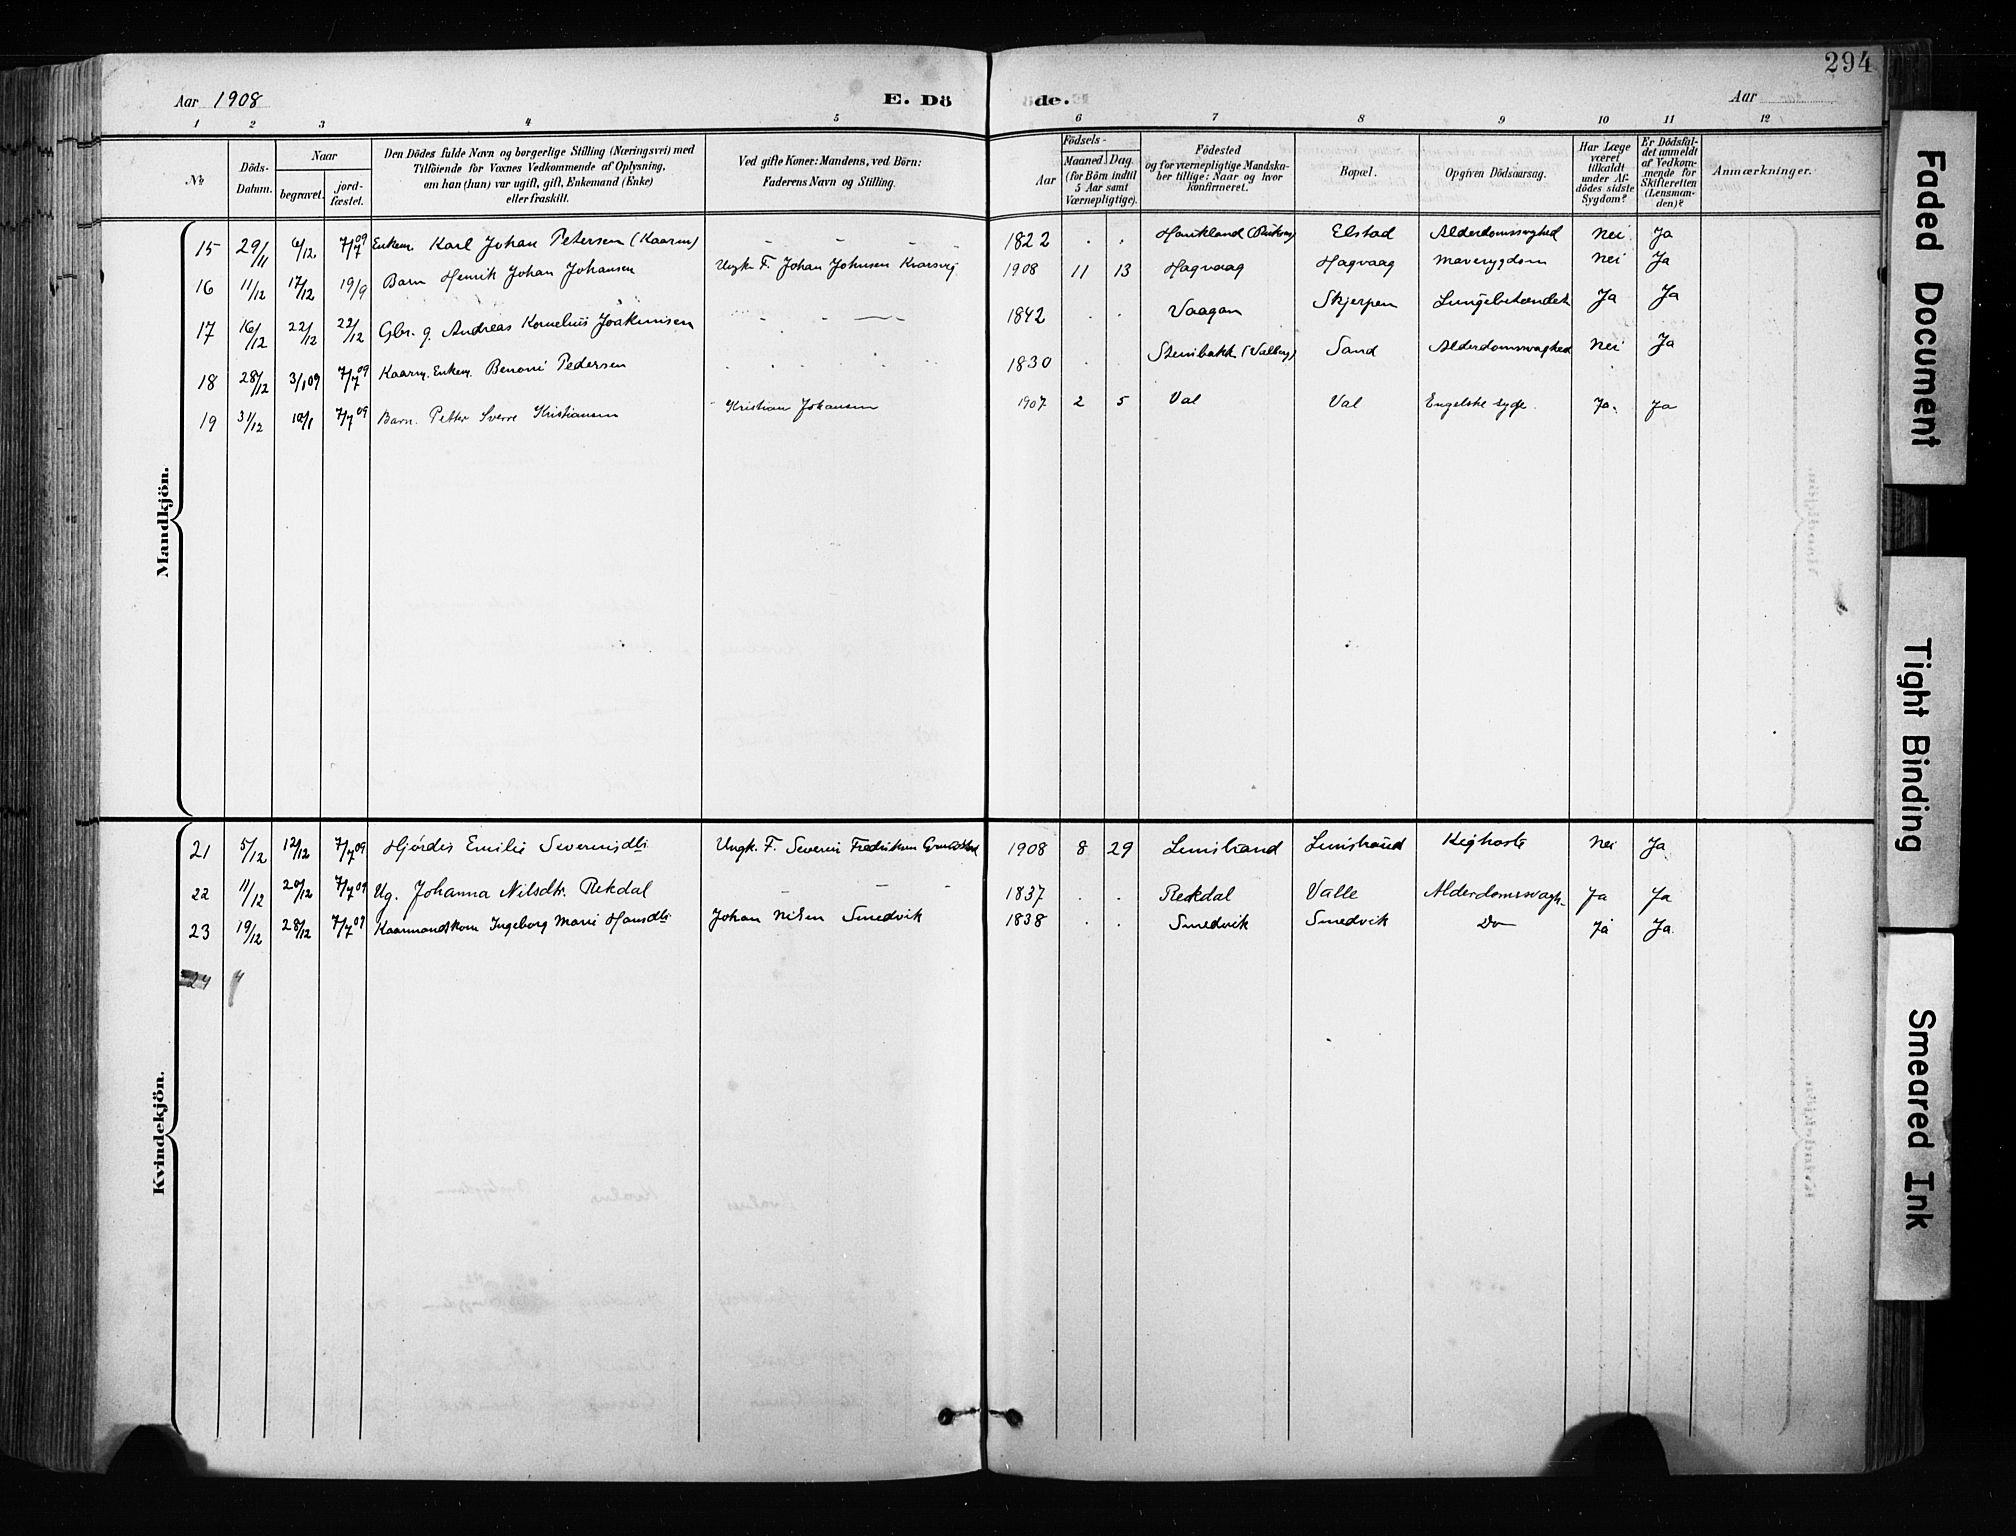 294
Aar 1908 E. Dö de. Aar
1 2 3 4 5 6 7 8 9 10 11 12
No.
Döds-Datum.
Naar
begravet.
jord-fæstet.
Den Dödes fulde Navn og borgerlige Stilling (Næringsvei) med
Tilföiende for Voxnes Vedkommende af Oplysning,
om han (hun) var ugift, gift, Enkemand (Enke)
eller fraskilt.
Ved gifte Koner: Mandens, ved Börn:
Faderens Navn og Stilling.
Födsels-
Aar
Maaned Dag.
(for Börn indtil
5 Aar samt
Værnepligtige).
Födested
og for værnepligtige Mandska-
ber tillige: Naar og hvor
konfirmeret.
Bopæl.
Opgiven Dödsaarsag.
Har Læge
været
tilkaldt
under Af-
dödes sidste
Sygdom?
Er Dödsfal-
det anmeldt
af Vedkom-
mende for
Skifteretten
(Lensman-
den)?
Anmærkninger.
Mandkjön.
15 29/11 6/12 7/7 09 Enkem. Karl Johan Petersen (Kaarm) - - - - 1822 . . Haukland Elstad Alderdomssvaghed Nei Ja
16 11/12 17/12 19/9 Barn Henrik Johan Johansen Ungk. F. Johan Johnsen Kvarsvig 1908 11 13 Hagvaag Hagvaag Mavesygdom Nei Ja
17 16/12 22/12 22/12 Gbr. g. Andreas Kornelius Joakimsen - - - - 1842 . . Vaagan Skjerpen Lungebetændet Ja Ja
18 28/12 3/1 09 7/7 09 Kaarm. Enkem. Benoni Pedersen . . . . 1830 . . Steinbakk (Valberg) Sand Alderdomssvaghed Nei Ja
19 31/12 10/1 7/7 09 Barn. Petter Sverre Kristiansen Kristian Johansen 1907 2 5 Val Val Engelske syge. Ja. Ja
Kvindekjön.
21 5/12 12/12 7/7 09 Hjørdis Emilie Severinsdtr Ungk. F. Severin Fredriksen 1908 8 29 Limstrand Limstrand Kighoste Nei Ja
22 11/12 20/12 7/7 09 Ug. Johanna Nilsdtr. Rekdal - - - 1837 . . Rekdal Valle Alderdomssvagh. Ja Ja
23 19/12 28/12 7/7 09 Kaarmandskone Ingeborg Marie Hansdtr Johan Nilsen Smedvik 1838 . . Smedvik Smedvik Do Ja Ja
24
Faded Document
Tight Binding
Smeared Ink